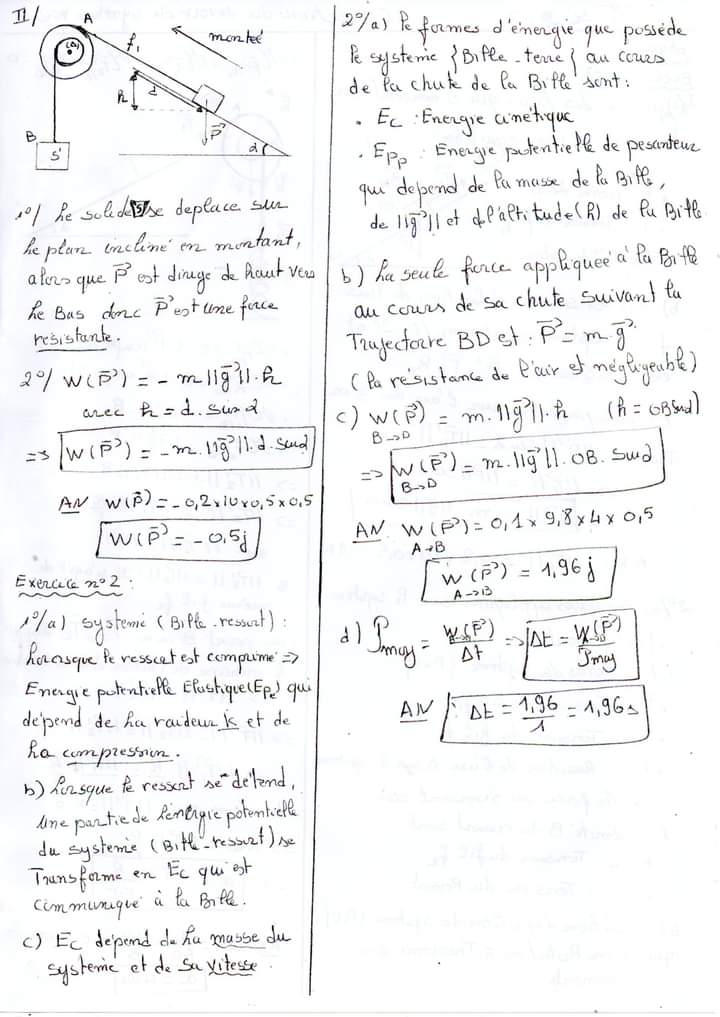 II/
A
(Δ)
f₁
montée
h
d
P⃗
α
B
S'
1°/ Le solide (S) se deplace sur
le plan incliné en montant,
alors que P⃗ est dirigé de haut vers
le Bas donc P⃗ est une force
résistante.
2°/ W(P⃗) = - m ||g⃗||. h
avec h = d. sin α
=> W(P⃗) = - m. ||g⃗||. d. sin α
AN W(P⃗) = - 0,2 x 10 x 0,5 x 0,5
W(P⃗) = - 0,5 j
Exercice n° 2 :
1°/a) système (Bille - ressort) :
Lorsque le ressort est comprimé =>
Energie potentielle Elastique (Epe) qui
dépend de la raideur k et de
la compression.
b) Lorsque le ressort se détend,
une partie de l'énergie potentielle
du système (Bille - ressort) se
Transforme en Ec qui est
communiqué à la Bille.
c) Ec dépend de la masse du
système et de sa vitesse.
2°/a) le formes d'énergie que posséde
le systeme { Bille - terre { au cours
de la chute de la Bille sont :
• Ec : Energie cinétique
• Epp : Energie potentielle de pesanteur
qui dépend de la masse de la Bille,
de ||g⃗|| et de l'altitude (h) de la Bille.
b) La seule force appliqueé à la Bille
au cours de sa chute suivant la
Trajectoire BD est : P⃗ = m. g⃗
(la résistance de l'air est négligeable)
c) W(P⃗) = m. ||g⃗||. h (h = OB sin α)
B→D
=> W(P⃗) = m. ||g⃗||. OB. sin α
B→D
AN. W(P⃗) = 0,1 x 9,8 x 4 x 0,5
A→B
W(P⃗) = 1,96 j
A→B
d) Pmoy = W(P⃗)/Δt => Δt = W(P⃗)/Pmoy
AN : Δt = 1,96/1 = 1,96 s